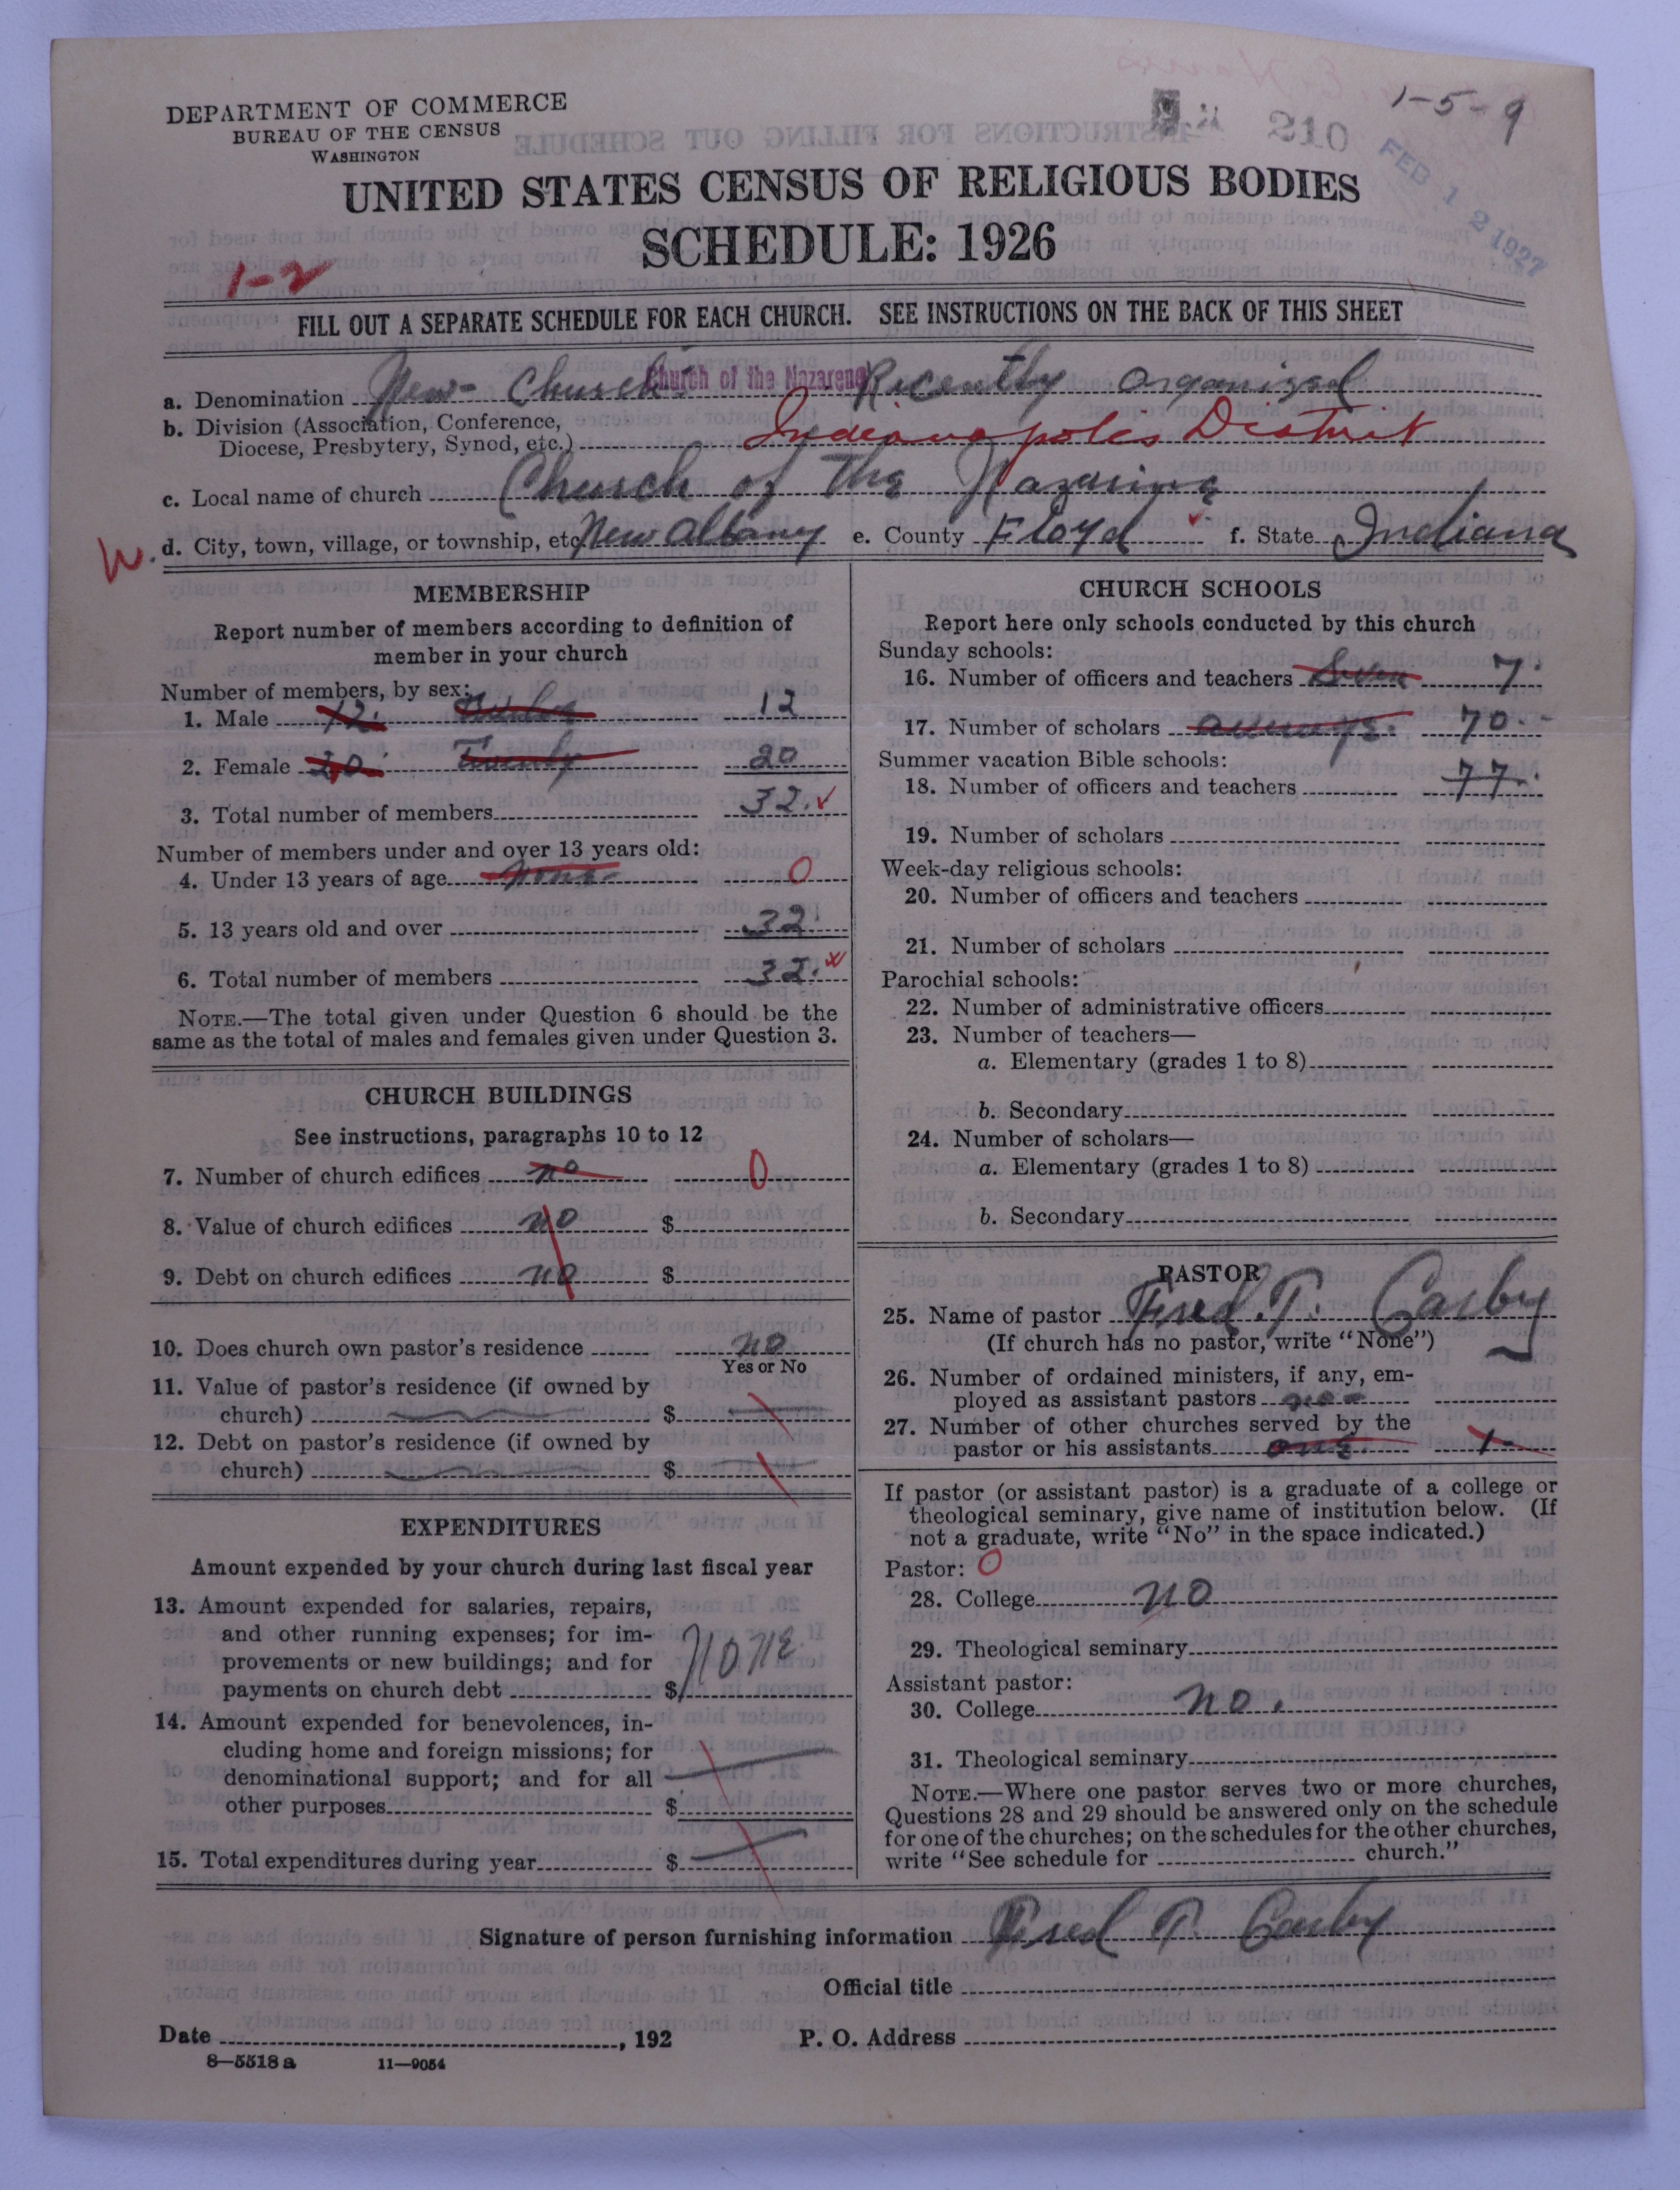 DEPARTMENT OF COMMERCE
BUREAU OF THE CENSUS
WASHINGTON
210
1-5-9
FEB 12 1927
UNITED STATES CENSUS OF RELIGIOUS BODIES
SCHEDULE: 1926
1-2
FILL OUT A SEPARATE SCHEDULE FOR EACH CHURCH. SEE INSTRUCTIONS ON THE BACK OF THIS SHEET
a. Denomination New- Church. Church of the Nazarene Recently organized
b. Division (Association, Conference,
Diocese, Presbytery, Synod, etc.) Indianapolis District
c. Local name of church Church of the Nazarine
W. d. City, town, village, or township, etc. New Albany e. County Floyd f. State Indiana
MEMBERSHIP
Report number of members according to definition of
member in your church
Number of members, by sex:
1. Male 12. Twelve 12
2. Female 20. Twenty 20
3. Total number of members 32.
Number of members under and over 13 years old:
4. Under 13 years of age None 0
5. 13 years old and over 32
6. Total number of members 32.
NOTE.—The total given under Question 6 should be the
same as the total of males and females given under Question 3.
CHURCH BUILDINGS
See instructions, paragraphs 10 to 12
7. Number of church edifices no 0
8. Value of church edifices no $
9. Debt on church edifices no $
10. Does church own pastor's residence no
Yes or No
11. Value of pastor's residence (if owned by
church) $
12. Debt on pastor's residence (if owned by
church) $
EXPENDITURES
Amount expended by your church during last fiscal year
13. Amount expended for salaries, repairs,
and other running expenses; for im-
provements or new buildings; and for
payments on church debt $ none
14. Amount expended for benevolences, in-
cluding home and foreign missions; for
denominational support; and for all
other purposes $
15. Total expenditures during year $
CHURCH SCHOOLS
Report here only schools conducted by this church
Sunday schools:
16. Number of officers and teachers Seven 7.
17. Number of scholars average. 70.
Summer vacation Bible schools:
18. Number of officers and teachers 77.
19. Number of scholars
Week-day religious schools:
20. Number of officers and teachers
21. Number of scholars
Parochial schools:
22. Number of administrative officers
23. Number of teachers—
a. Elementary (grades 1 to 8)
b. Secondary
24. Number of scholars—
a. Elementary (grades 1 to 8)
b. Secondary
PASTOR
25. Name of pastor Fred. T. Casby
(If church has no pastor, write "None")
26. Number of ordained ministers, if any, em-
ployed as assistant pastors
27. Number of other churches served by the
pastor or his assistants one. 1-
If pastor (or assistant pastor) is a graduate of a college or
theological seminary, give name of institution below. (If
not a graduate, write "No" in the space indicated.)
Pastor: 0
28. College no
29. Theological seminary
Assistant pastor:
30. College no.
31. Theological seminary
NOTE.—Where one pastor serves two or more churches,
Questions 28 and 29 should be answered only on the schedule
for one of the churches; on the schedules for the other churches,
write "See schedule for church."
Signature of person furnishing information Fred T. Casby
Official title
Date , 192 P. O. Address
8—5518 a 11—9054